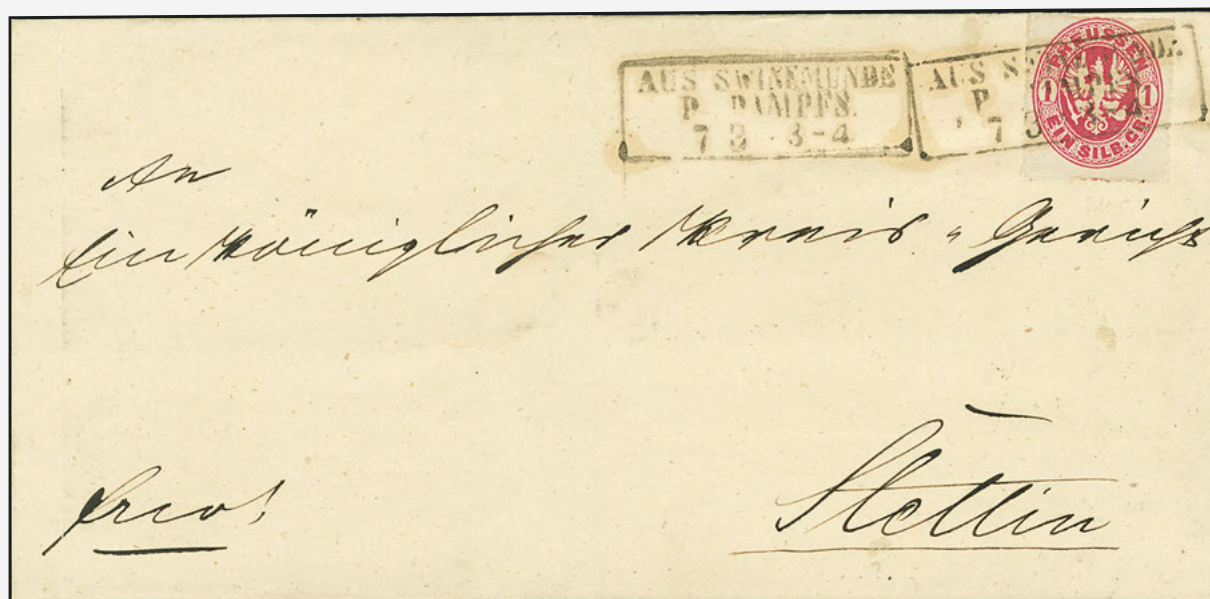 AUS SWINEMÜNDE
P. DAMPFS.
7 3 3-4
AUS
P
7 3 3-4
PREUSSEN
1 1
EIN SILB.GR.
An
Ein Königliches Kreis = Gericht
frco!
Stettin